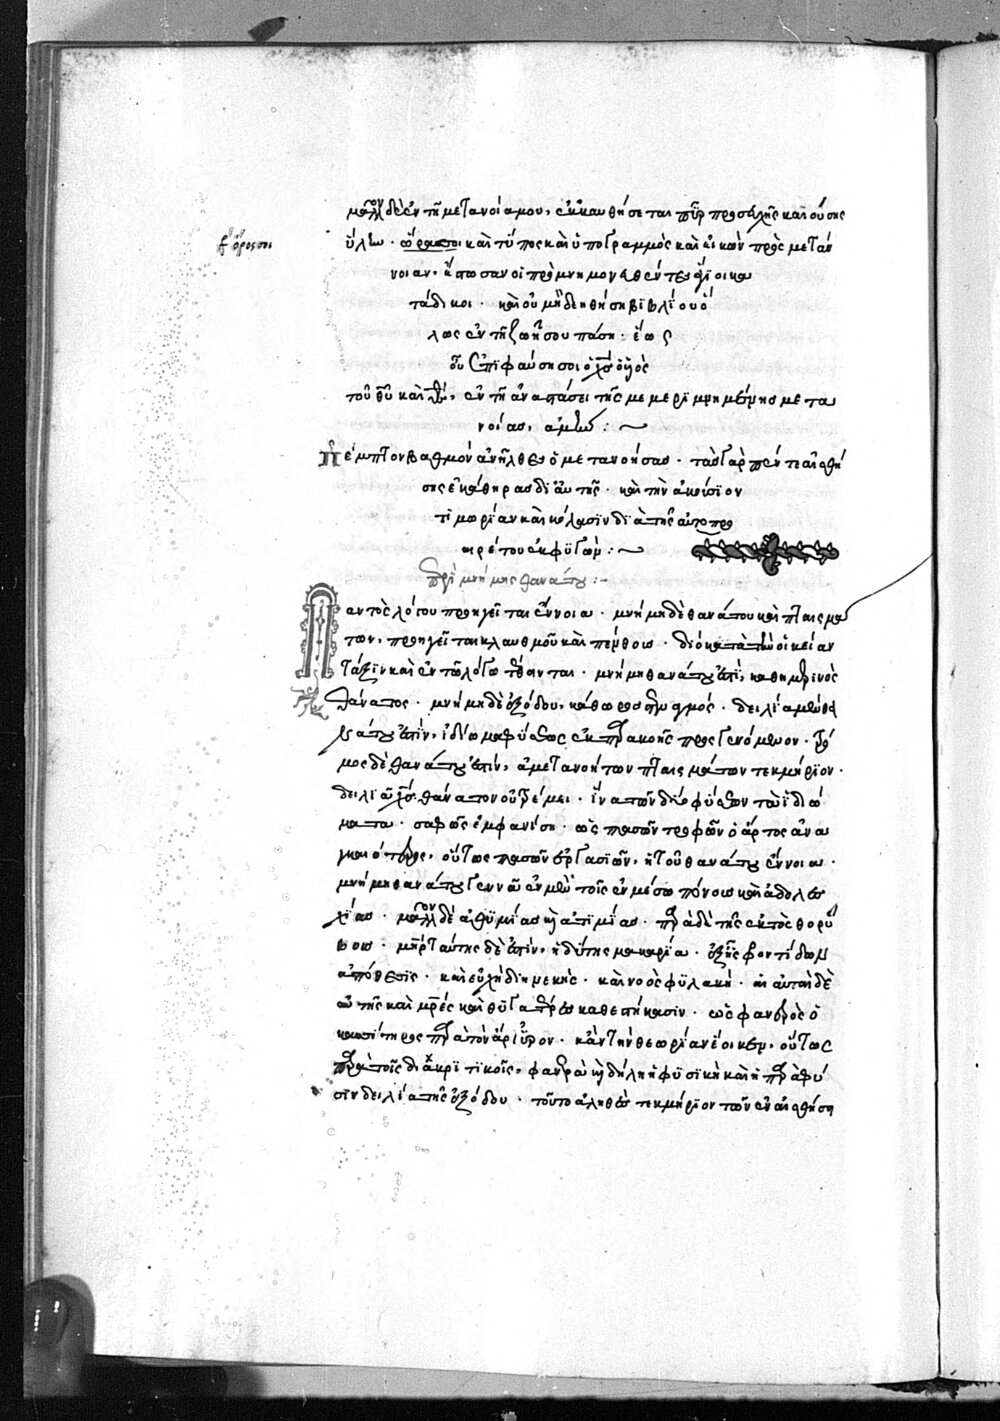 μᾶλλον δὲ ἐν τῇ μετανοία μου, ἐκκαυθήσεται πῦρ προσβλησκαὶ οὔσης
ὕλην · ὅρος σοι καὶ τύπος καὶ ὑπογραμμὸς καὶ εἰκὼν πρὸς μετάν
ὅρος σοι
νοιαν, ἔστωσαν οἱ προμνημονευθέντες ἅγιοι κα
τάδικοι · καὶ οὐ μὴ δεηθήση βίβλου ὅ
λως ἐν τῇ ζωῇ σου πάση · ἕως
οὗ ἐπιφαύση σοι ὁ χς ὁ υἱὸς
τοῦ θῦ καὶ θς, ἐν τῇ ἀναστάσει τῆς μεμεριμνημένης μετα
νοίας, ἀμήν :~
Πέμπτον βαθμὸν ἀνῆλθες ὁ μετανοήσας · τὰς γὰρ πέντε αἰσθή
σης ἐκάθηρας δι' αὐτῆς · καὶ τὴν ἀκούσιον
τιμωρίαν καὶ κόλασιν διὰ τῆς αὐτοπρο
αιρέτου ἐκφυγών :~
περὶ μνήμης θανάτου :-
Παντὸς λόγου προηγεῖται ἔννοια · μνήμη δὲ θανάτου καὶ πταισμά
των, προηγεῖται κλαυθμοῦ καὶ πένθους · διὸ κατὰ τὴν οἰκείαν
τάξιν καὶ ἐν τῷ λόγω τέθειται · μνήμη θανάτου ἐστὶ, καθημερινὸς
θάνατος · μνήμη δὲ ἐξόδου, κάθωρος στεναγμός · δειλία μὲν θα
νάτου ἐστὶν, ἰδίωμα φύσεως ἐκ παρακοῆς προσγενόμενον · τρό
μος δὲ θανάτου ἐστὶν, ἀμετανοήτων πταισμάτων τεκμήριον ·
δειλιᾶ χς θάνατον οὐ τρέμει · ἵνα τῶν δύο φύσεων τὰ ἰδιώ
ματα · σαφῶς ἐμφανίση · ὡς πασῶν τροφῶν ὁ ἄρτος ἀναγ
καιότερος, οὕτως πασῶν ἐργασιῶν, ἡ τοῦ θανάτου ἔννοια ·
μνήμη θανάτου γεννᾶ ἐν μὲν τοῖς ἐν μέσω πόνους καὶ ἀδολεσ
χίας · μᾶλλον δὲ ἀθυμίας καὶ ἀτιμίας · παρὰ δὲ τῆς ἐκτὸς θορύ
βους · μήτηρ ταύτης δὲ ἐστὶν, ἡ δύτης μακαρία · ἑξῆς φροντίδων
ἀπόθεσις · καὶ εὐχὴ διηνεκὴς · καὶ νοὸς φυλακή · αἱ αὐταὶ δὲ
αὐτῆς καὶ μρες καὶ θυγατέρες καθεστήκασιν · ὡς φανερὸς ὁ
κασσίτηρος παρὰ τὸν ἄργυρον · κἂν τὴν θεωρίαν ἔοικεν, οὕτως
παρὰ τοῖς διακριτικοῖς, φανερὰ καὶ δήλη ἡ φυσικὴ καὶ ἡ παρὰ φύ
σιν δειλία τῆς ἐξόδου · τοῦτο ἀληθὲς τεκμήριον τῶν ἐν αἰσθήση